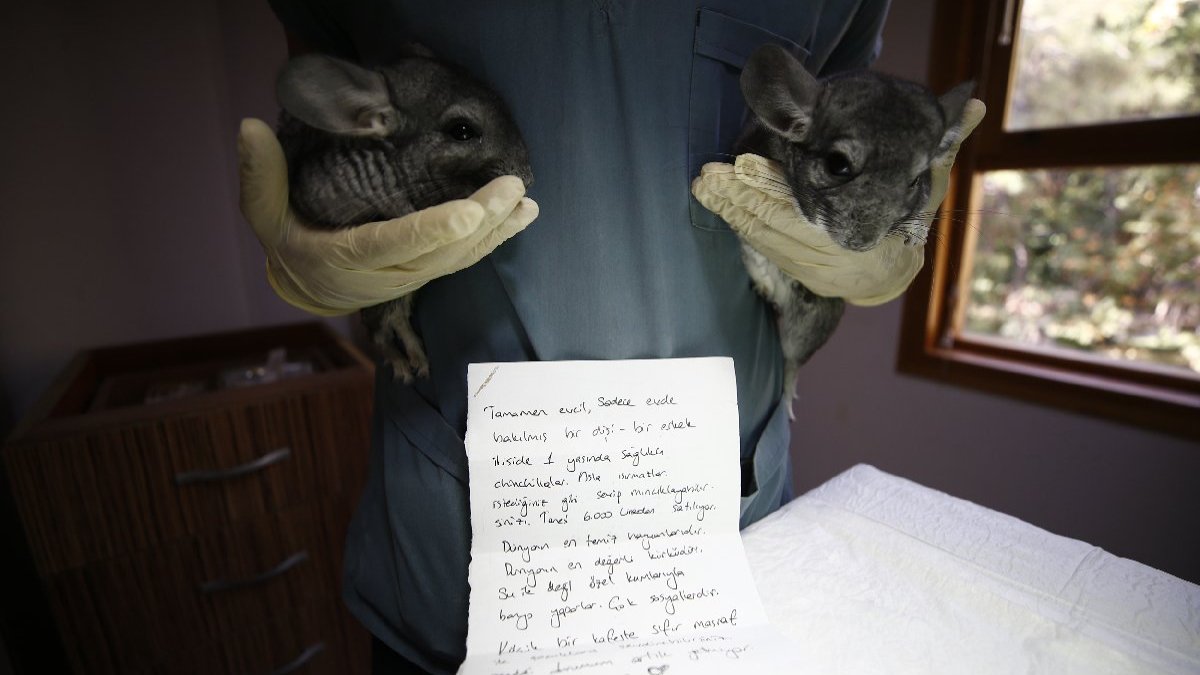 Tamamen evcil, Sadece evde
bakılmış bir dişi - bir erkek
ikiside 1 yaşında sağlıklı
chinchillalar. Asla ısırmazlar.
istediğiniz gibi sevip mıncıklayabilir-
siniz. Tanesi 6.000 liradan satılıyor.
Dünyanın en temiz hayvanlarıdır.
Dünyanın en değerli kürküdür.
Su ile değil özel kumlarıyla
banyo yaparlar. Çok sosyallerdir.
Küçük bir kafeste sıfır masraf
ile
durumum artık yetmiyor.